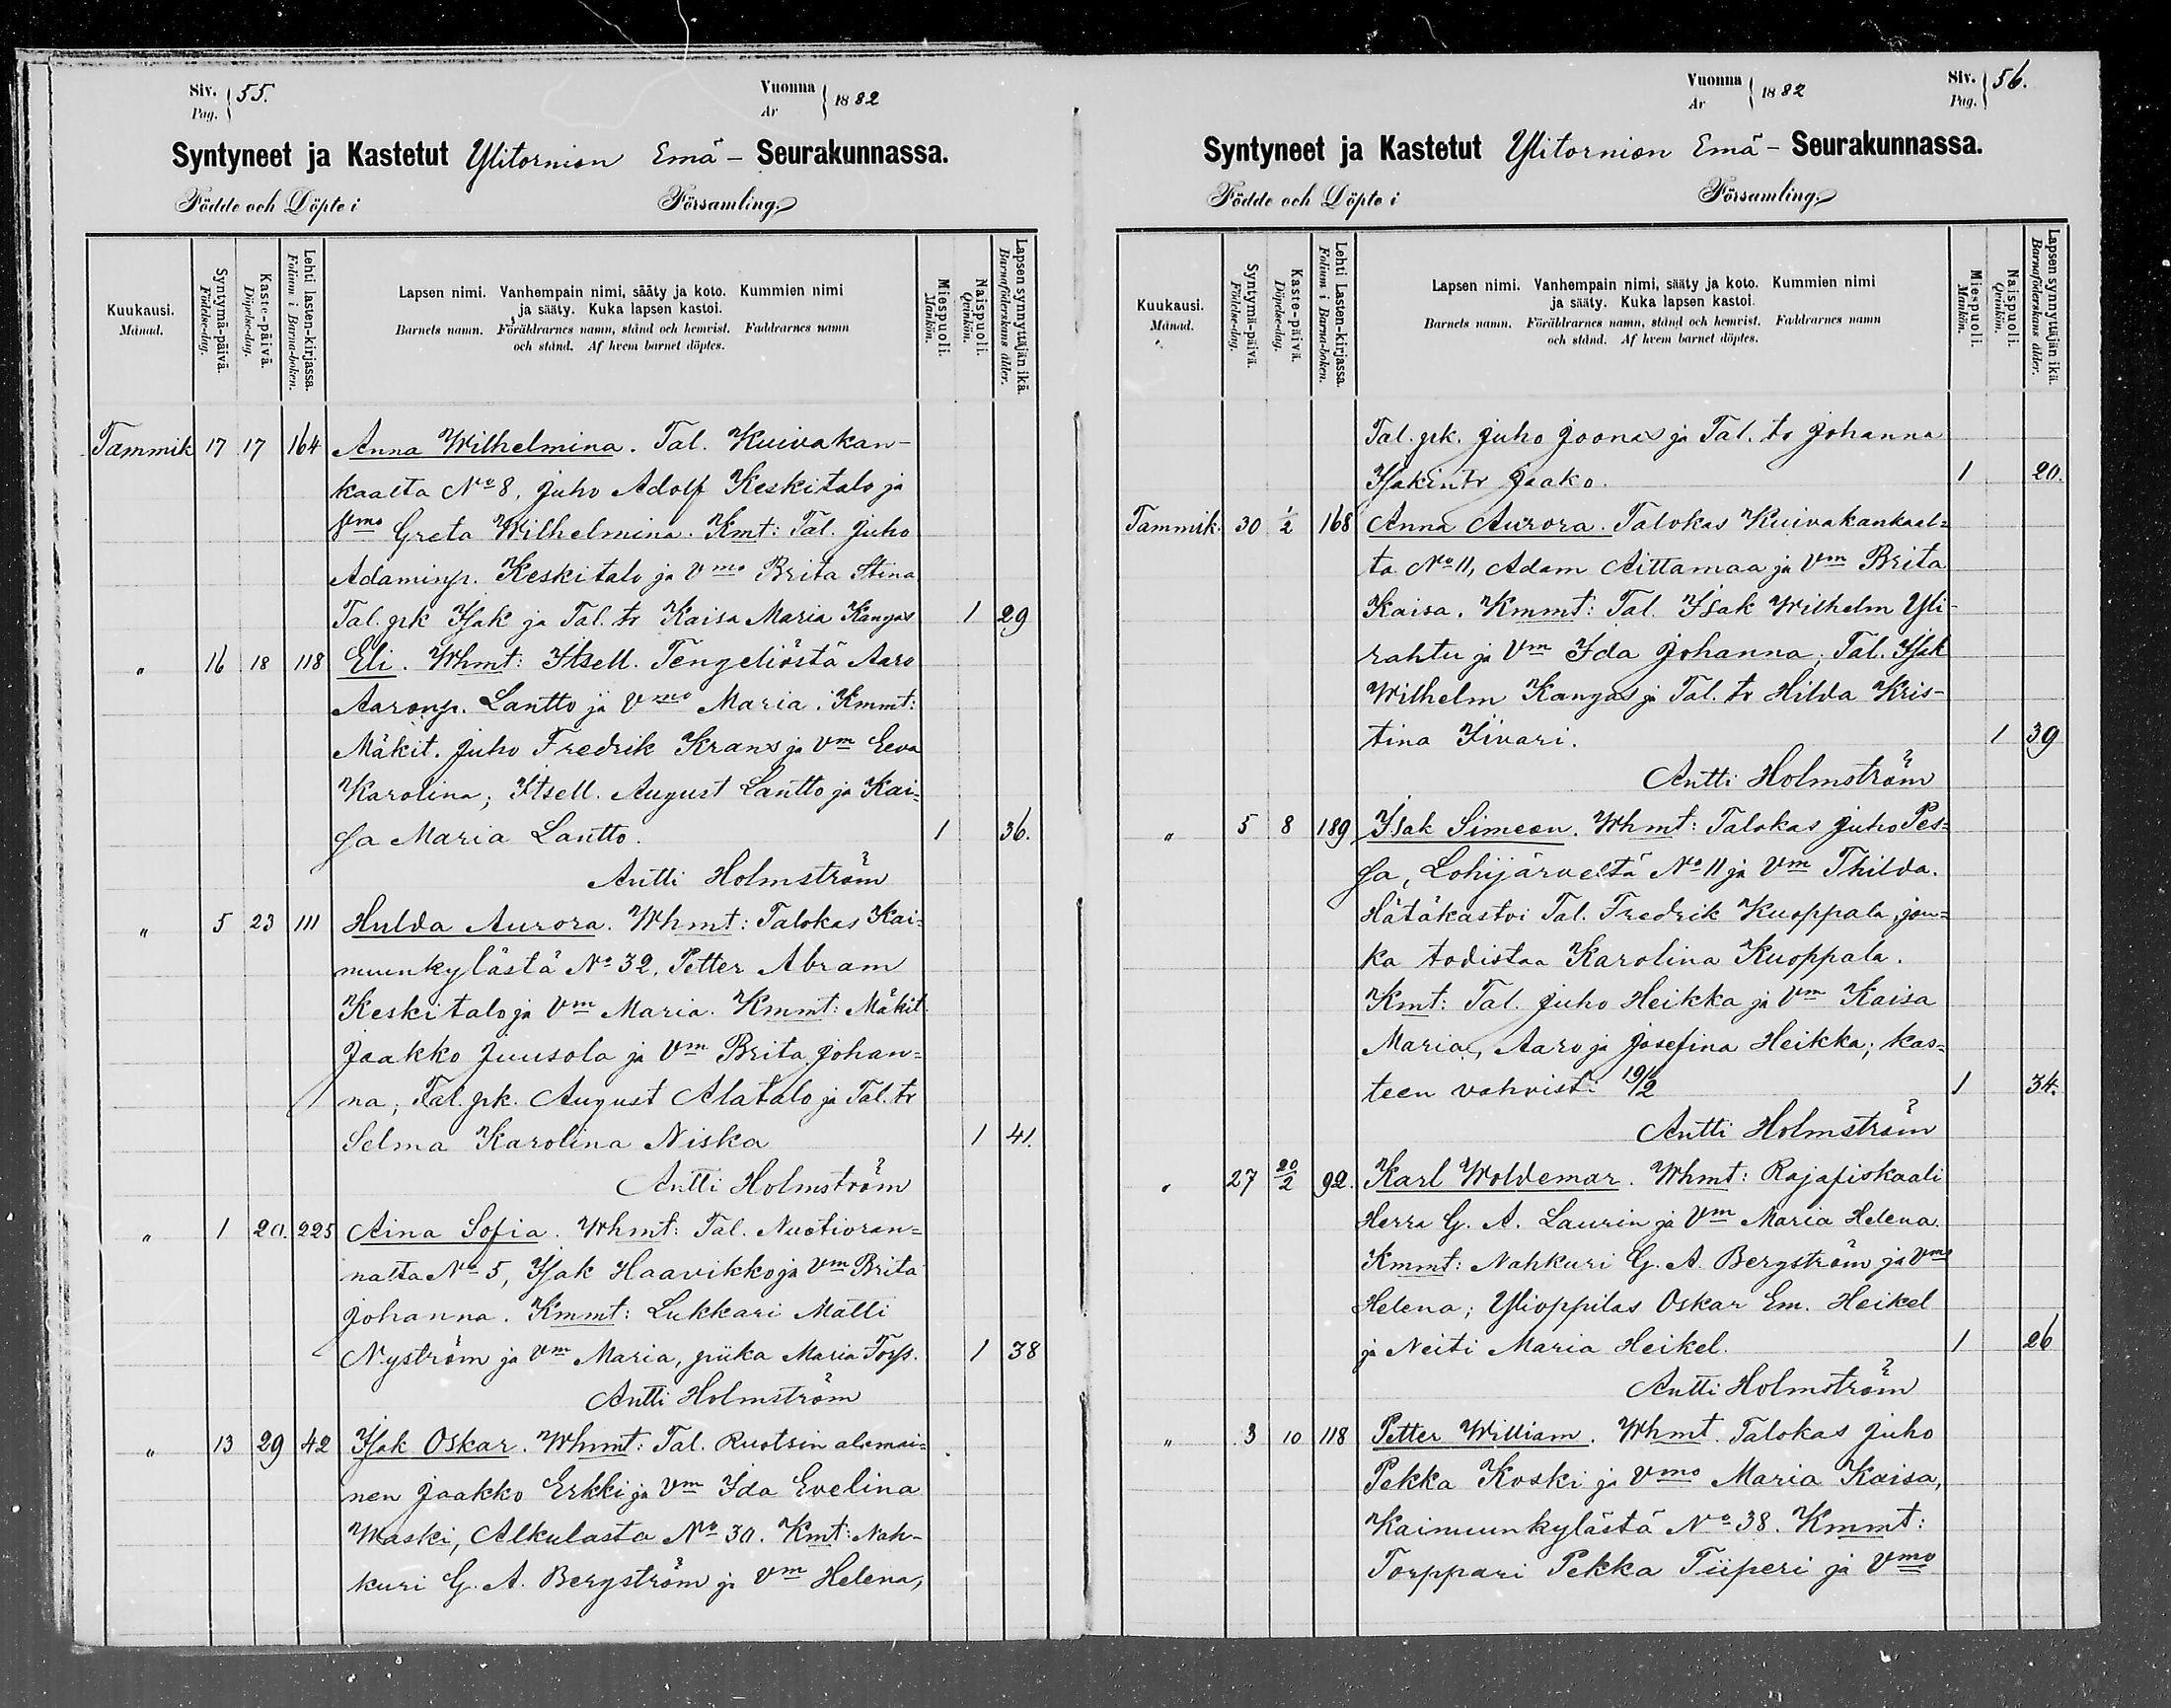 Siv. 55.
Pag.
Vuonna 1882
År
Syntyneet ja Kastetut Ylitornion Emä- Seurakunnassa.
Födde och Döpte i Församling.
Kuukausi.
Månad.
Syntymä-päivä.
Födelse-dag.
Kaste-päivä.
Döpelse-dag.
Lehti lasten-kirjassa.
Folium i Barna-boken.
Lapsen nimi. Vanhempain nimi, sääty ja koto. Kummien nimi
ja sääty. Kuka lapsen kastoi.
Barnets namn. Föräldrarnes namn, stånd och hemvist. Faddrarnes namn
och stånd. Af hvem barnet döptes.
Miespuoli.
Mankön.
Naispuoli.
Qvinkön.
Lapsen synnyttäjän ikä.
Barnaföderskans ålder.
Tammik 17 17 164 Anna Wilhelmina. Tal. Kuivakan-
kaalta No 8, Juho Adolf Keskitalo ja
Vmo Greta Wilhelmina. Kmt: Tal. Juho
Adaminp. Keskitalo ja Vmo Brita Stina
Tal. pk Isak ja Tal. tr Kaisa Maria Kangas 1 29
" 16 18 118 Eli. Whmt: Itsell. Tengeliöstä Aaro
Aaronp. Lantto ja Vmo Maria. Kmmt:
Mäkit. Juho Fredrik Krans ja Vm Eeva
Karolina; Itsell. August Lantto ja Kai=
sa Maria Lantto. 1 36.
Antti Holmström
" 5 23 111 Hulda Aurora. Whmt: Talokas Kai=
nuunkylästä No 32, Petter Abram
Keskitalo ja Vm Maria. Kmmt: Mäkit.
Jaakko Juusola ja Vm Brita Johan=
na; Tal. pk. August Alatalo ja Tal. tr
Selma Karolina Niska 1 41.
Antti Holmström
" 1 20. 225 Aina Sofia. Whmt: Tal. Nuotioran=
nalta No 5, Isak Haavikko ja Vm Brita
Johanna. Kmmt: Lukkari Matti
Nyström ja Vm Maria, piika Maria Forss. 1 38
Antti Holmström
" 13 29 42 Isak Oskar. Whmt: Tal. Ruotsin alamai=
nen Jaakko Erkki ja Vm Ida Evelina
Waski, Alkulasta No 30. Kmt: Nah-
kuri G. A. Bergström ja Vm Helena,
Vuonna 1882
År
Siv. 56.
Pag.
Syntyneet ja Kastetut Ylitornion Emä- Seurakunnassa.
Födde och Döpte i Församling.
Kuukausi.
Månad.
Syntymä-päivä.
Födelse-dag.
Kaste-päivä.
Döpelse-dag.
Lehti Lasten-kirjassa.
Folium i Barna-boken.
Lapsen nimi. Vanhempain nimi, sääty ja koto. Kummien nimi
ja sääty. Kuka lapsen kastoi.
Barnets namn. Föräldrarnes namn, stånd och hemvist. Faddrarnes namn
och stånd. Af hvem barnet döptes.
Miespuoli.
Mankön.
Naispuoli.
Qvinkön.
Lapsen synnyttäjän ikä.
Barnaföderskans ålder.
Tal. pk. Juho Joonas ja Tal. tr Johanna
Isakintr Jaako. 1 20.
Tammik. 30 1/2 168 Anna Aurora. Talokas Kuivakankaal=
ta No 11, Adam Aittamaa ja Vm Brita
Kaisa. Kmmt: Tal. Isak Wilhelm Yli-
rahtu ja Vm Ida Johanna; Tal. Isak
Wilhelm Kangas ja Tal. tr Hilda Kris-
tina Iivari. 1 39
Antti Holmström
" 5 8 189 Isak Simeon. Whmt: Talokas Juho Pes=
sa, Lohijärveltä No 11 ja Vm Thilda.
Hätäkastoi Tal. Fredrik Kuoppala, jon=
ka todistaa Karolina Kuoppala.
Kmt: Tal. Juho Heikka ja Vm Kaisa
Maria, Aaro ja Josefina Heikka; kas=
teen vahvist: 19/2 1 34.
Antti Holmström
" 27 20/2 92. Karl Woldemar. Whmt: Rajafiskaali
Herra G. A. Laurin ja Vm Maria Helena.
Kmmt: Nahkuri G. A. Bergström ja Vmo
Helena; Ylioppilas Oskar Em. Heikel
ja Neiti Maria Heikel. 1 26
Antti Holmström
" 3 10 118 Petter William. Whmt. Talokas Juho
Pekka Koski ja Vmo Maria Kaisa,
Kainuunkylästä No 38. Kmmt:
Torppari Pekka Tiiperi ja Vmo